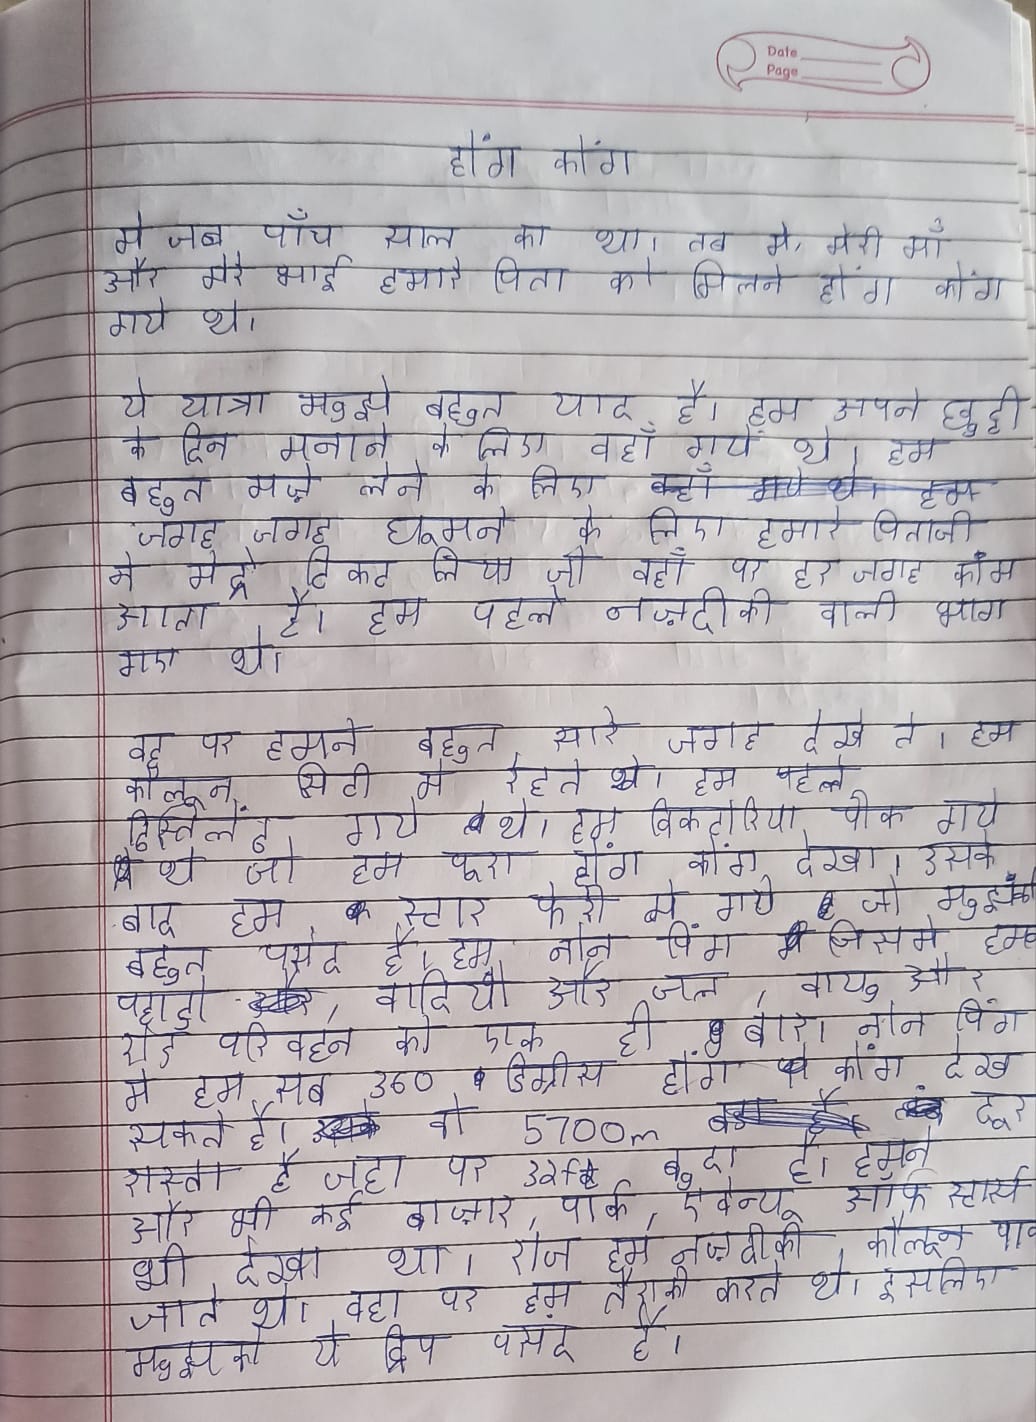 Date
Page
होंग कोंग
मे जब पाँच साल का था। तब मे, मेरी माँ
और मेरे भाई हमारे पिता को मिलने होंग कोंग
गये थे।
ये यात्रा मुझे बहुत याद है। हम अपने छुट्टी
के दिन मनाने के लिए वहाँ गये थे। हम
बहुत मज़े लेने के लिए
जगह जगह घूमने के लिए हमारे पिताजी
ने मेट्रो टिकट लिया जो वहाँ पर हर जगह काम
आता है। हम पहले नज़दीकी वाली भाग
गए थे।
वहु पर हमने बहुत सारे जगह देखे ते। हम
कोलून सिटी मे रेहते थे। हम पहले
गये थे। हम विकटोरिया पीक गये
थे जो हम पूरा होंग कोंग देखा। उसके
बाद हम स्टार फेरी मे गये जो मुझको
बहुत पसंद है। हम नोन पिंग जिसमे हम
पहाडो, वादियो और जल, वायु और
रोड परिवहन को एक ही बार। नोन पिंग
मे हम सब 360 डिग्रीस होंग कोंग देख
सकते है। वो 5700m दूर
रास्ता है जहा पर 32ft बुदा है। हमने
और भी कई बाज़ार, पार्क, ऐवेन्यू ऑफ स्टार्स
भी देखा था। रोज हम नज़दीकी कौलून पार्क
जाते थे। वहा पर हम तैराकी करते थे। इसलिए
मुझको ये ट्रिप पसंद है।